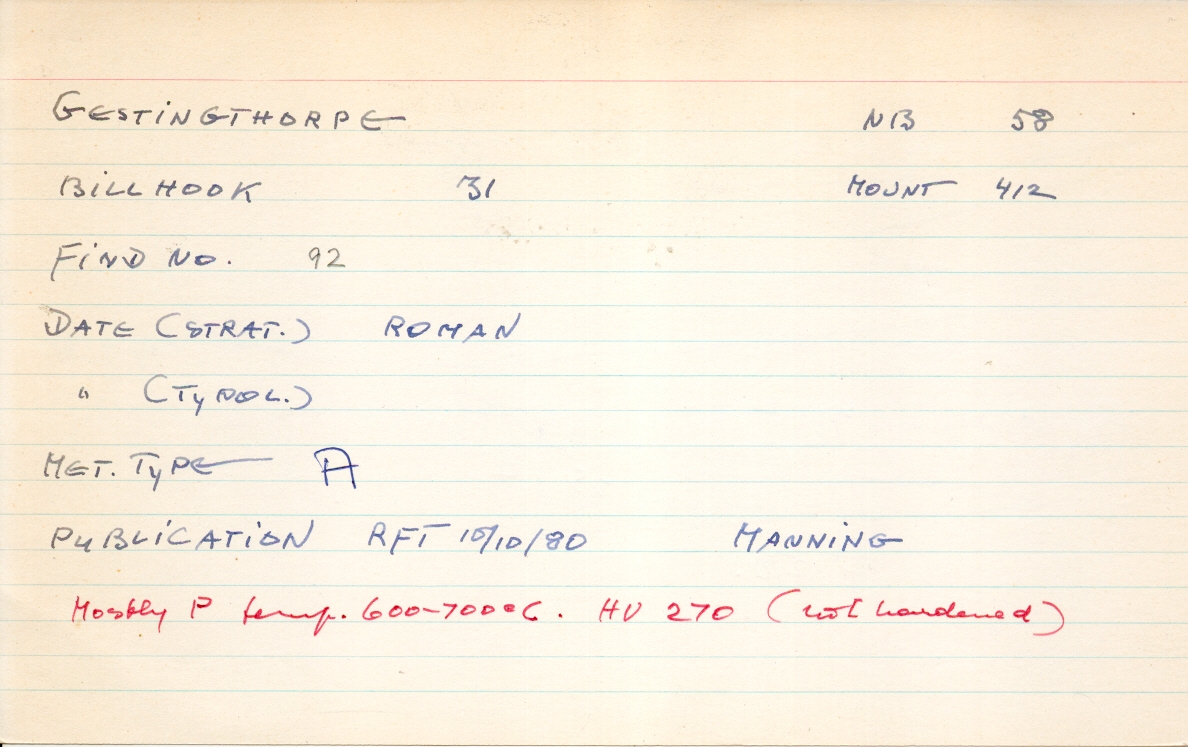 GESTINGTHORPE NB 58
BILLHOOK 31 MOUNT 412
FIND NO. 92
DATE (STRAT.) ROMAN
" (TYPOL.)
MET. TYPE A
PUBLICATION RFT 10/10/80 MANNING
Mostly P temp. 600-700°C. HV 270 (not hardened)